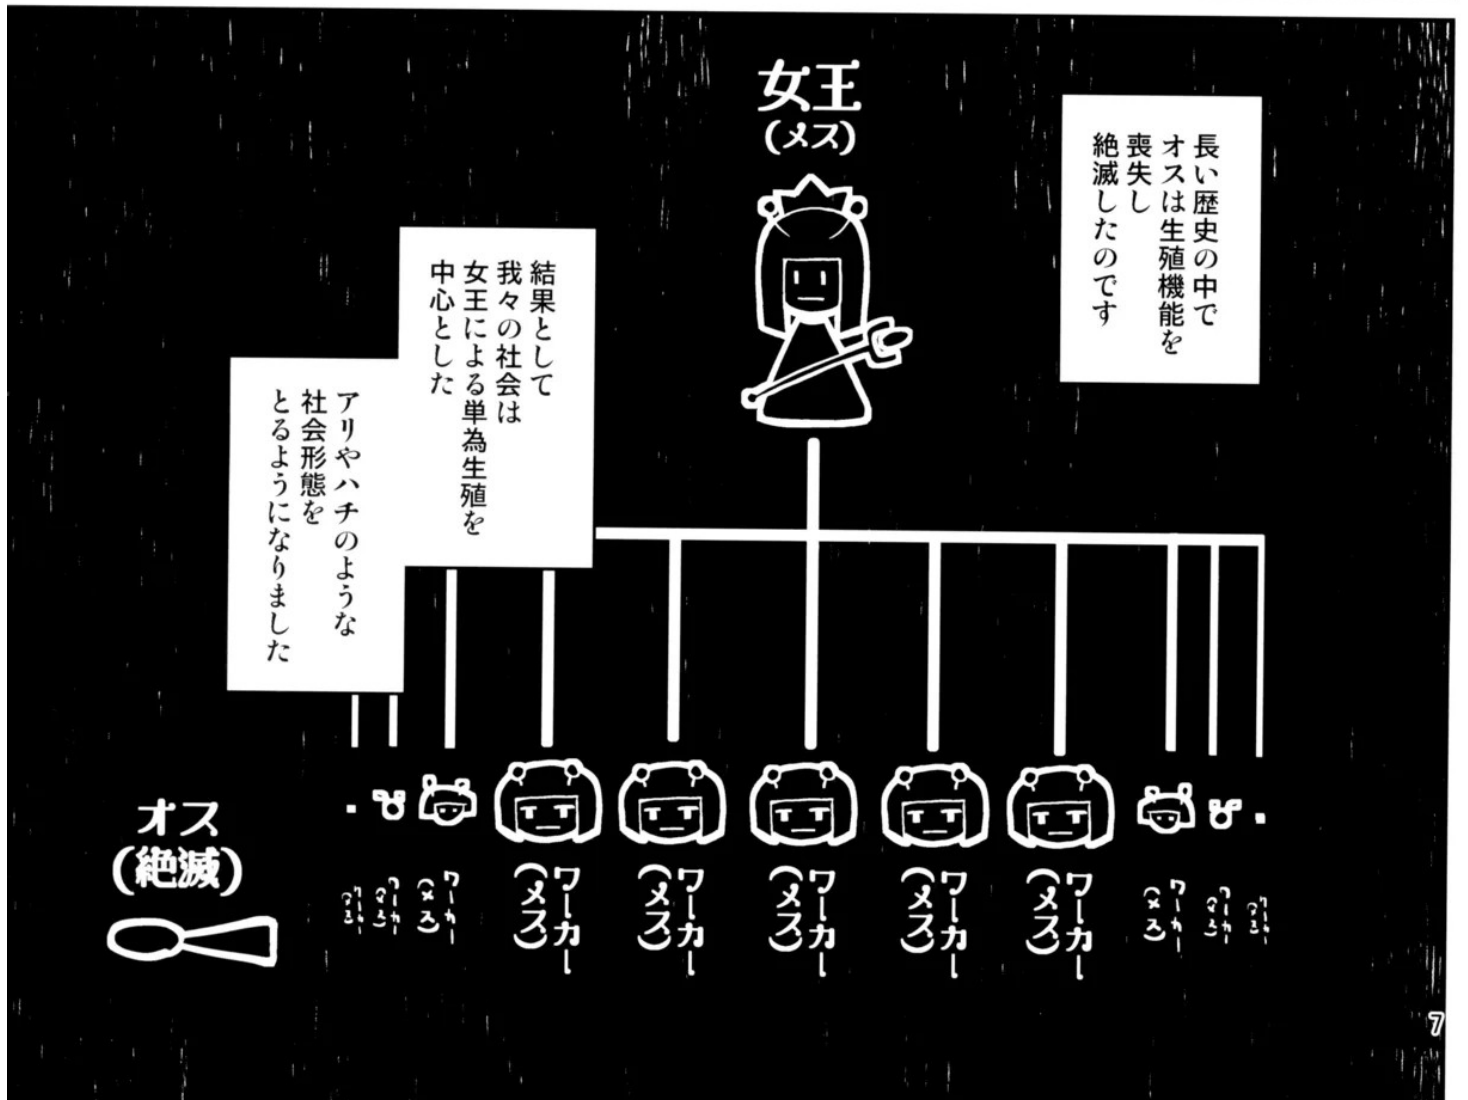 女王
(メス)
長い歴史の中で
オスは生殖機能を
喪失し
絶滅したのです
結果として
我々の社会は
女王による単為生殖を
中心とした
アリやハチのような
社会形態を
とるようになりました
ワーカー
(メス)
ワーカー
(メス)
ワーカー
(メス)
ワーカー
(メス)
ワーカー
(メス)
ワーカー
(メス)
ワーカー
(メス)
ワーカー
(メス)
ワーカー
(メス)
ワーカー
(メス)
ワーカー
(メス)
オス
(絶滅)
7